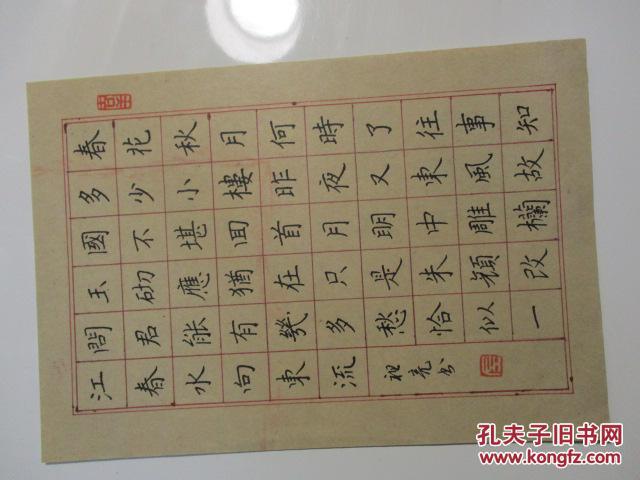 春花秋月何時了往事知
多少小樓昨夜又東風故
國不堪回首月明中雕欄
玉砌應猶在只是朱顔改
問君能有幾多愁恰似一
江春水向東流祖亮书
孔夫子旧书网
www.kongfz.com